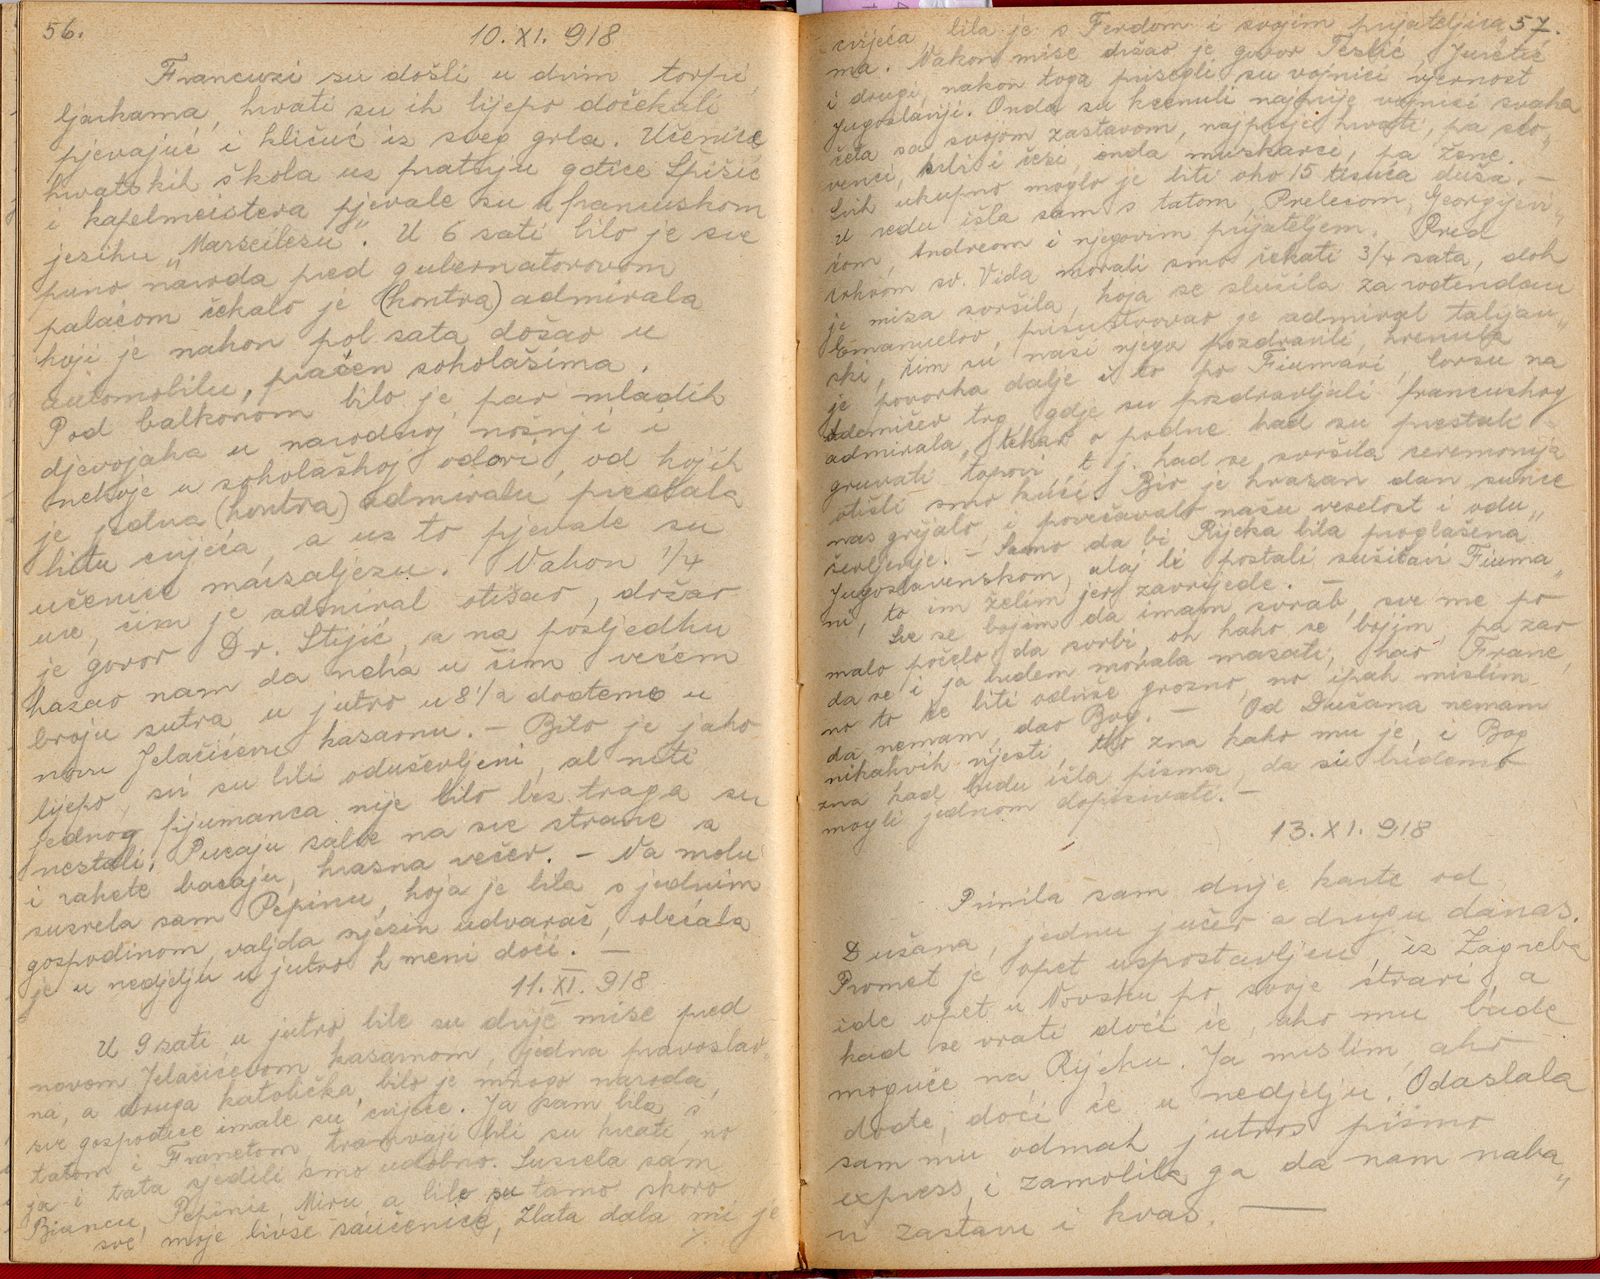 56.
10. XI. 918
Francuzi su došli u dvim torpi„
ljarkama, hrvati su ih lijepo dočekali
pjevajuć i kličuć iz sveg grla. Učenice
hrvatskih škola uz pratnju gdice Spišić
i kapelmeistera pjevale su u francuskom
jeziku „Marseilesu". U 6 sati bilo je sve
puno naroda pred gubernatorovom
palačom čekalo je (kontra) admirala
koji je nakon pol sata došao u
automobilu, praćen sokolašima.
Pod balkonom bilo je par mladih
djevojaka u narodnoj nošnji i
nekoje u sokolaškoj odori, od kojih
je jedna (kontra) admiralu predala
kitu cvijeća, a uz to pjevale su
učenice marsaljezu. Nakon 1/4
ure, čim je admiral otišao, držao
je govor Dr. Stijić, a na posljedku
kazao nam da neka u čim većem
broju sutra u jutro u 8 1/2 dođemo u
novu Jelačićevu kasarnu. – Bilo je jako
lijepo, svi su bili oduševljeni, al niti
jednog fijumanca nije bilo bez traga su
nestali. Pucaju salve na sve strane a
i rakete bacaju, krasna večer. – Na molu
susrela sam Pepinu, koja je bila s jednim
gospodinom, valjda njezin udvarač, obećala
je u nedjelju u jutro k meni doći. –
11. XI. 918
U 9 sati u jutro bile su dvije mise pred
novom Jelačićevom kasarnom, jedna pravoslav„
na, a druga katolička, bilo je mnogo naroda,
sve gospođice imale su cvijeće. Ja sam bila s
tatom i Franetom tramvaji bili su krcati, no
ja i tata sjedili smo udobno. Susrela sam
Biancu, Pepinu, Miru a bile su tamo skoro
sve moje bivše saučenice, Zlata dala mi je
57.
cvijeća, bila je s Ferdom i svojim prijateljica„
ma. Nakon mise držao je govor Teslić, Juretić
i drugi, nakon toga prisegli su vojnici vjernost
Jugoslaviji. Onda su krenuli najprije vojnici svaka
četa sa svojom zastavom, najprije hrvati, pa slo„
venci, srbi i česi, onda muškarci, pa žene.
Svih ukupno moglo je biti oko 15 tisuća duša. –
U redu išla sam s tatom, Prelecom, Georgijevi„
ćom, Andreom i njegovim prijateljem. Pred
crkvom sv. Vida morali smo čekati 3/4 sata, dok
je misa svršila, koja se slušila za rođendan
Emanuelov, prisustvovao je admiral talijan„
ski, čim su naši njega pozdravili, krenula
je povorka dalje i to po Fiumari, Corsu na
Ademićev trg, gdje su pozdravljali francuskog
admirala, tekar o podne kad su prestali
gruvati topovi t. j. kad se svršila ceremonija
otišli smo kući. Bio je krasan dan sunce
nas grijalo, i povećavalo našu veselost i odu„
ševljenje. – Samo da bi Rijeka bila proglašena
Jugoslavenskom, alaj bi postali sušičavi Fiuma„
ni, to im želim jer zavrijede. –
Sve se bojim da imam svrab, sve me po
malo počelo da svrbi, oh kako se bojim, pa zar
da se i ja budem morala mazati, kao Frane,
no to će biti odviše grozno, no ipak mislim
da nemam, dao Bog. – Od Dušana nemam
nikakvih vijesti, tko zna kako mu je, i Bog
zna kad budu išla pisma, da si budemo
mogli jednom dopisivati. –
13. XI. 918
Primila sam dvije karte od
Dušana, jednu jučer a drugu danas.
Promet je opet uspostavljen, iz Zagreba
ide opet u Novsku po svoje stvari, a
kad se vrati doći će, ako mu bude
moguće na Rijeku. Ja mislim, ako
dođe, doći će u nedjelju. Odaslala
sam mu odmah jutros pismo
express, i zamolila ga da nam naba„
vi zastavu i kvas. –